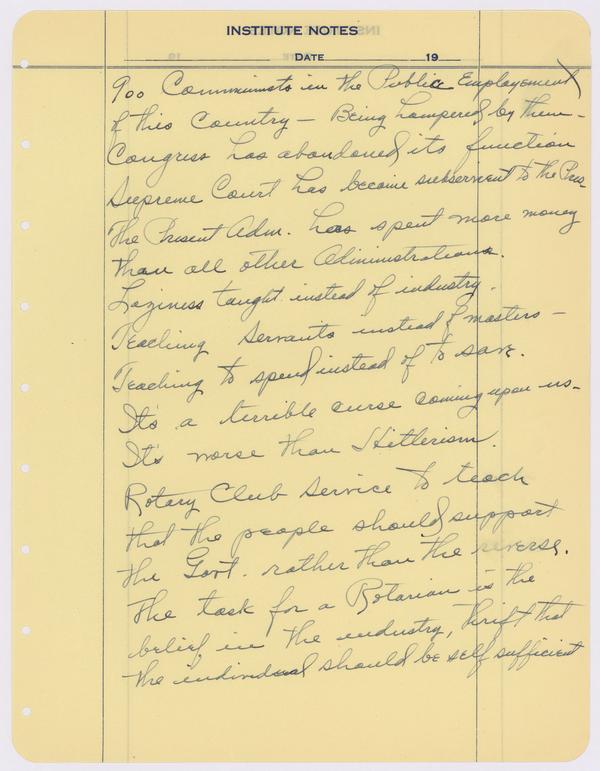 INSTITUTE NOTES
DATE 19
900 Communists in the Public Employement
of this Country — Being hampered by them —
Congress has abandoned its function
Supreme Court has become subservient to the Pres
The Present Adm. has spent more money
than all other Administrations.
Laziness taught instead of industry.
Teaching Servants instead of masters —
Teaching to spend instead of to save.
It's a terrible curse coming upon us —
It's worse than Hitlerism.
Rotary Club Service to teach
that the people should support
the Govt. rather than the reverse.
The task for a Rotarian is the
belief in the industry, thrift that
the individual should be self sufficient